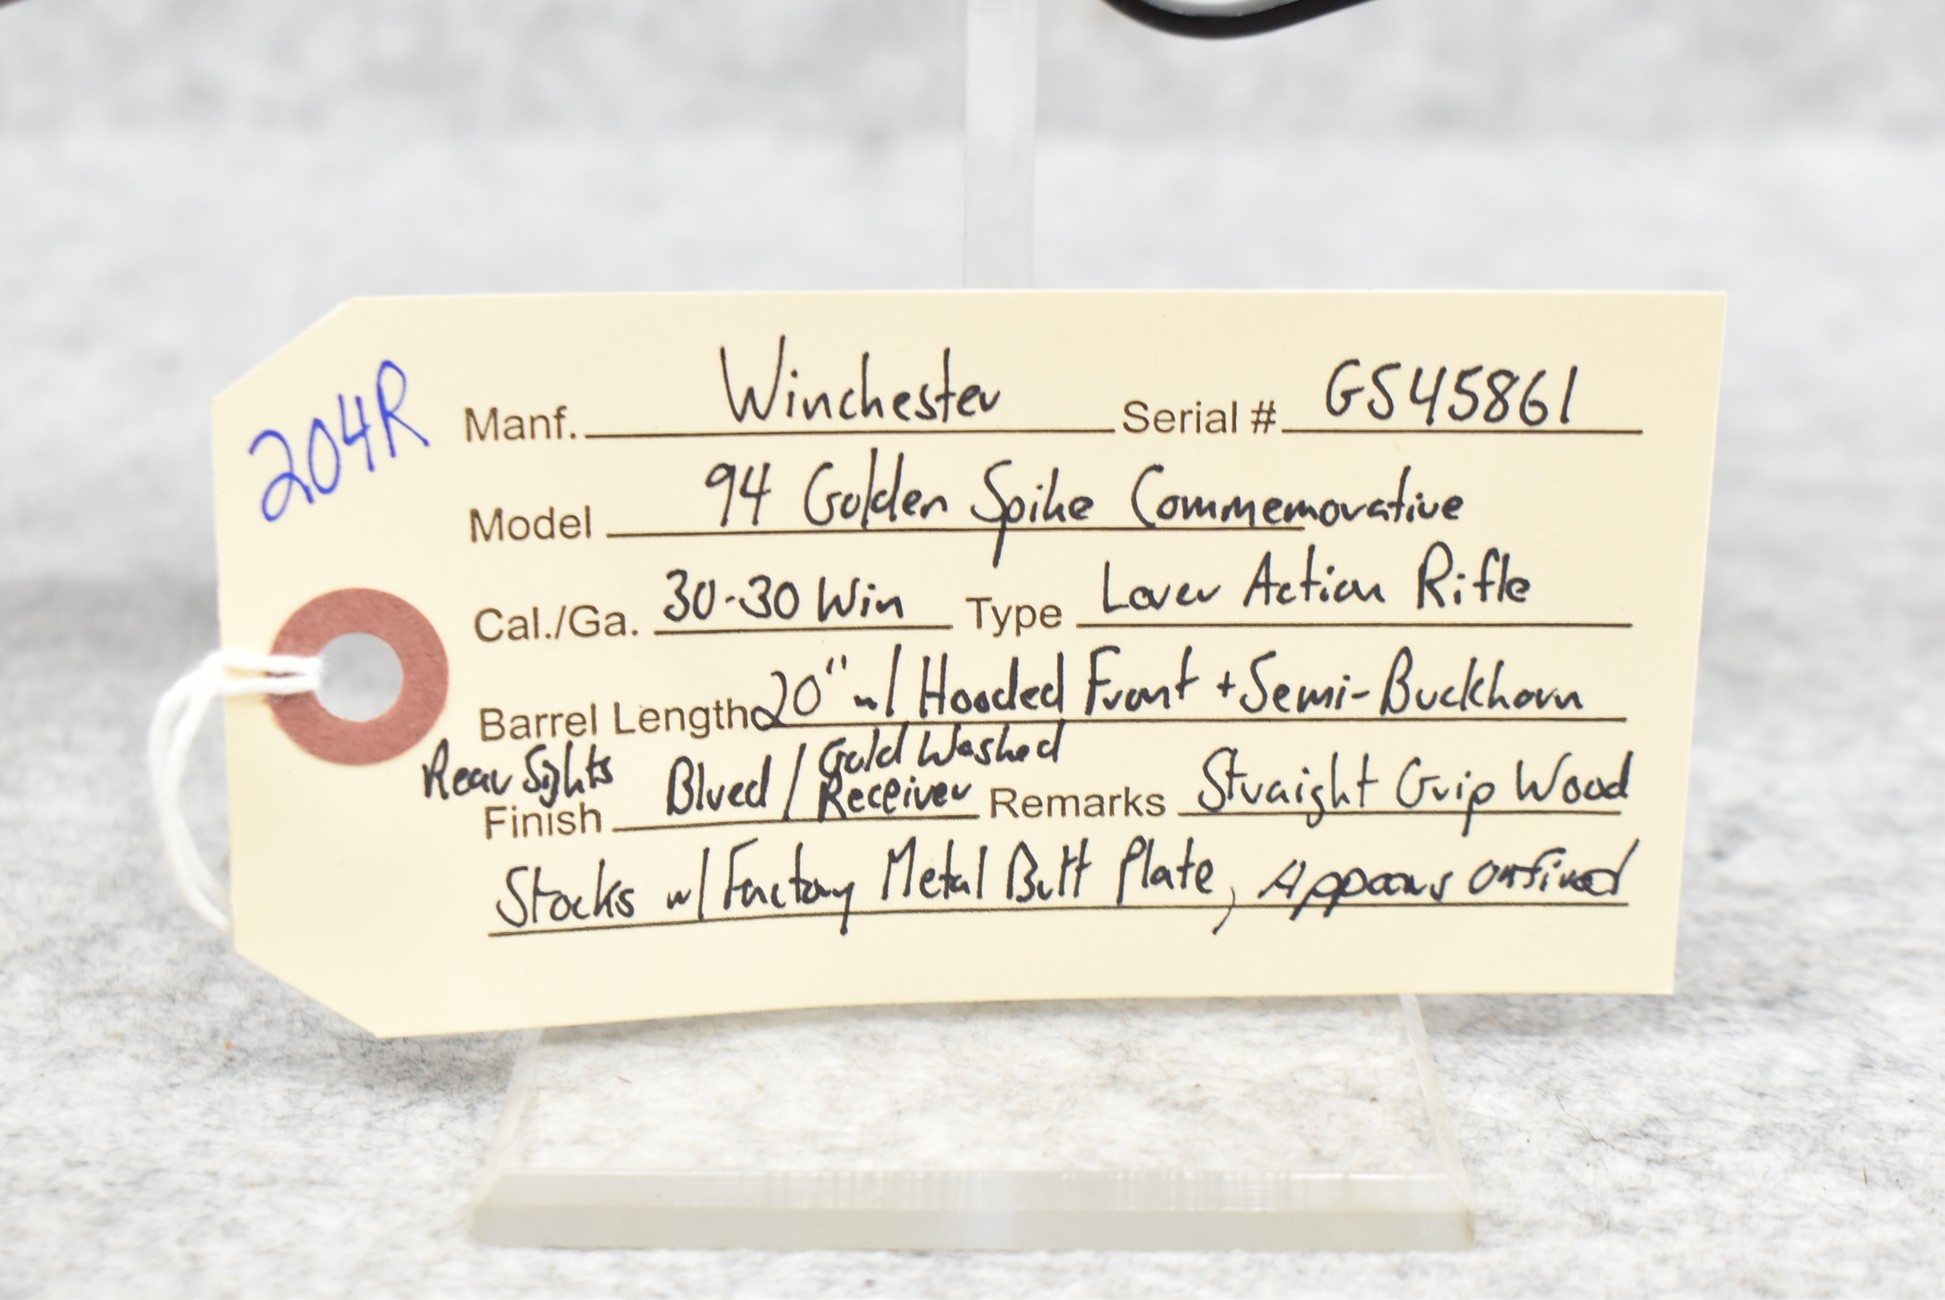 204R
Manf. Winchester Serial # GS45861
Model 94 Golden Spike Commemorative
Cal./Ga. 30-30 Win Type Lever Action Rifle
Barrel Length 20" w/ Hooded Front + Semi-Buckhorn
Rear Sights
Finish Blued / Gold Washed Receiver Remarks Straight Grip Wood
Stocks w/ Factory Metal Butt Plate, Appears unfired